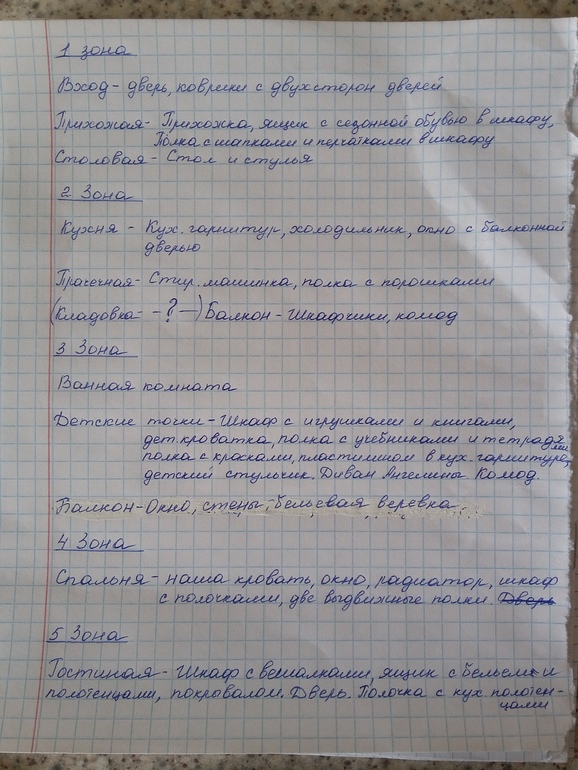 1 зона
Вход - дверь, коврики с двух сторон дверей
Прихожая - Прихожка, ящик с сезонной обувью в шкафу,
Полка с шапками и перчатками в шкафу
Столовая - Стол и стулья
2 Зона
Кухня - Кух. гарнитур, холодильник, окно с балконной
дверью
Прачечная - Стир. машинка, полка с порошками
(Кладовка - - ? -) Балкон - Шкафчики, комод
3 Зона
Ванная комната
Детские точки - Шкаф с игрушками и книгами,
дет. кроватка, полка с учебниками и тетрадями
полка с красками, пластилином в кух. гарнитуре,
детский стульчик. Диван Ангелины. Комод.
Балкон - Окно, стены, бельевая веревка
4 Зона
Спальня - наша кровать, окно, радиатор, шкаф
с полочками, две выдвижные полки. Дверь
5 Зона
Гостиная - Шкаф с вешалками, ящик с бельем и
полотенцами, покрывалом. Дверь. Полочка с кух. полотен-
цами